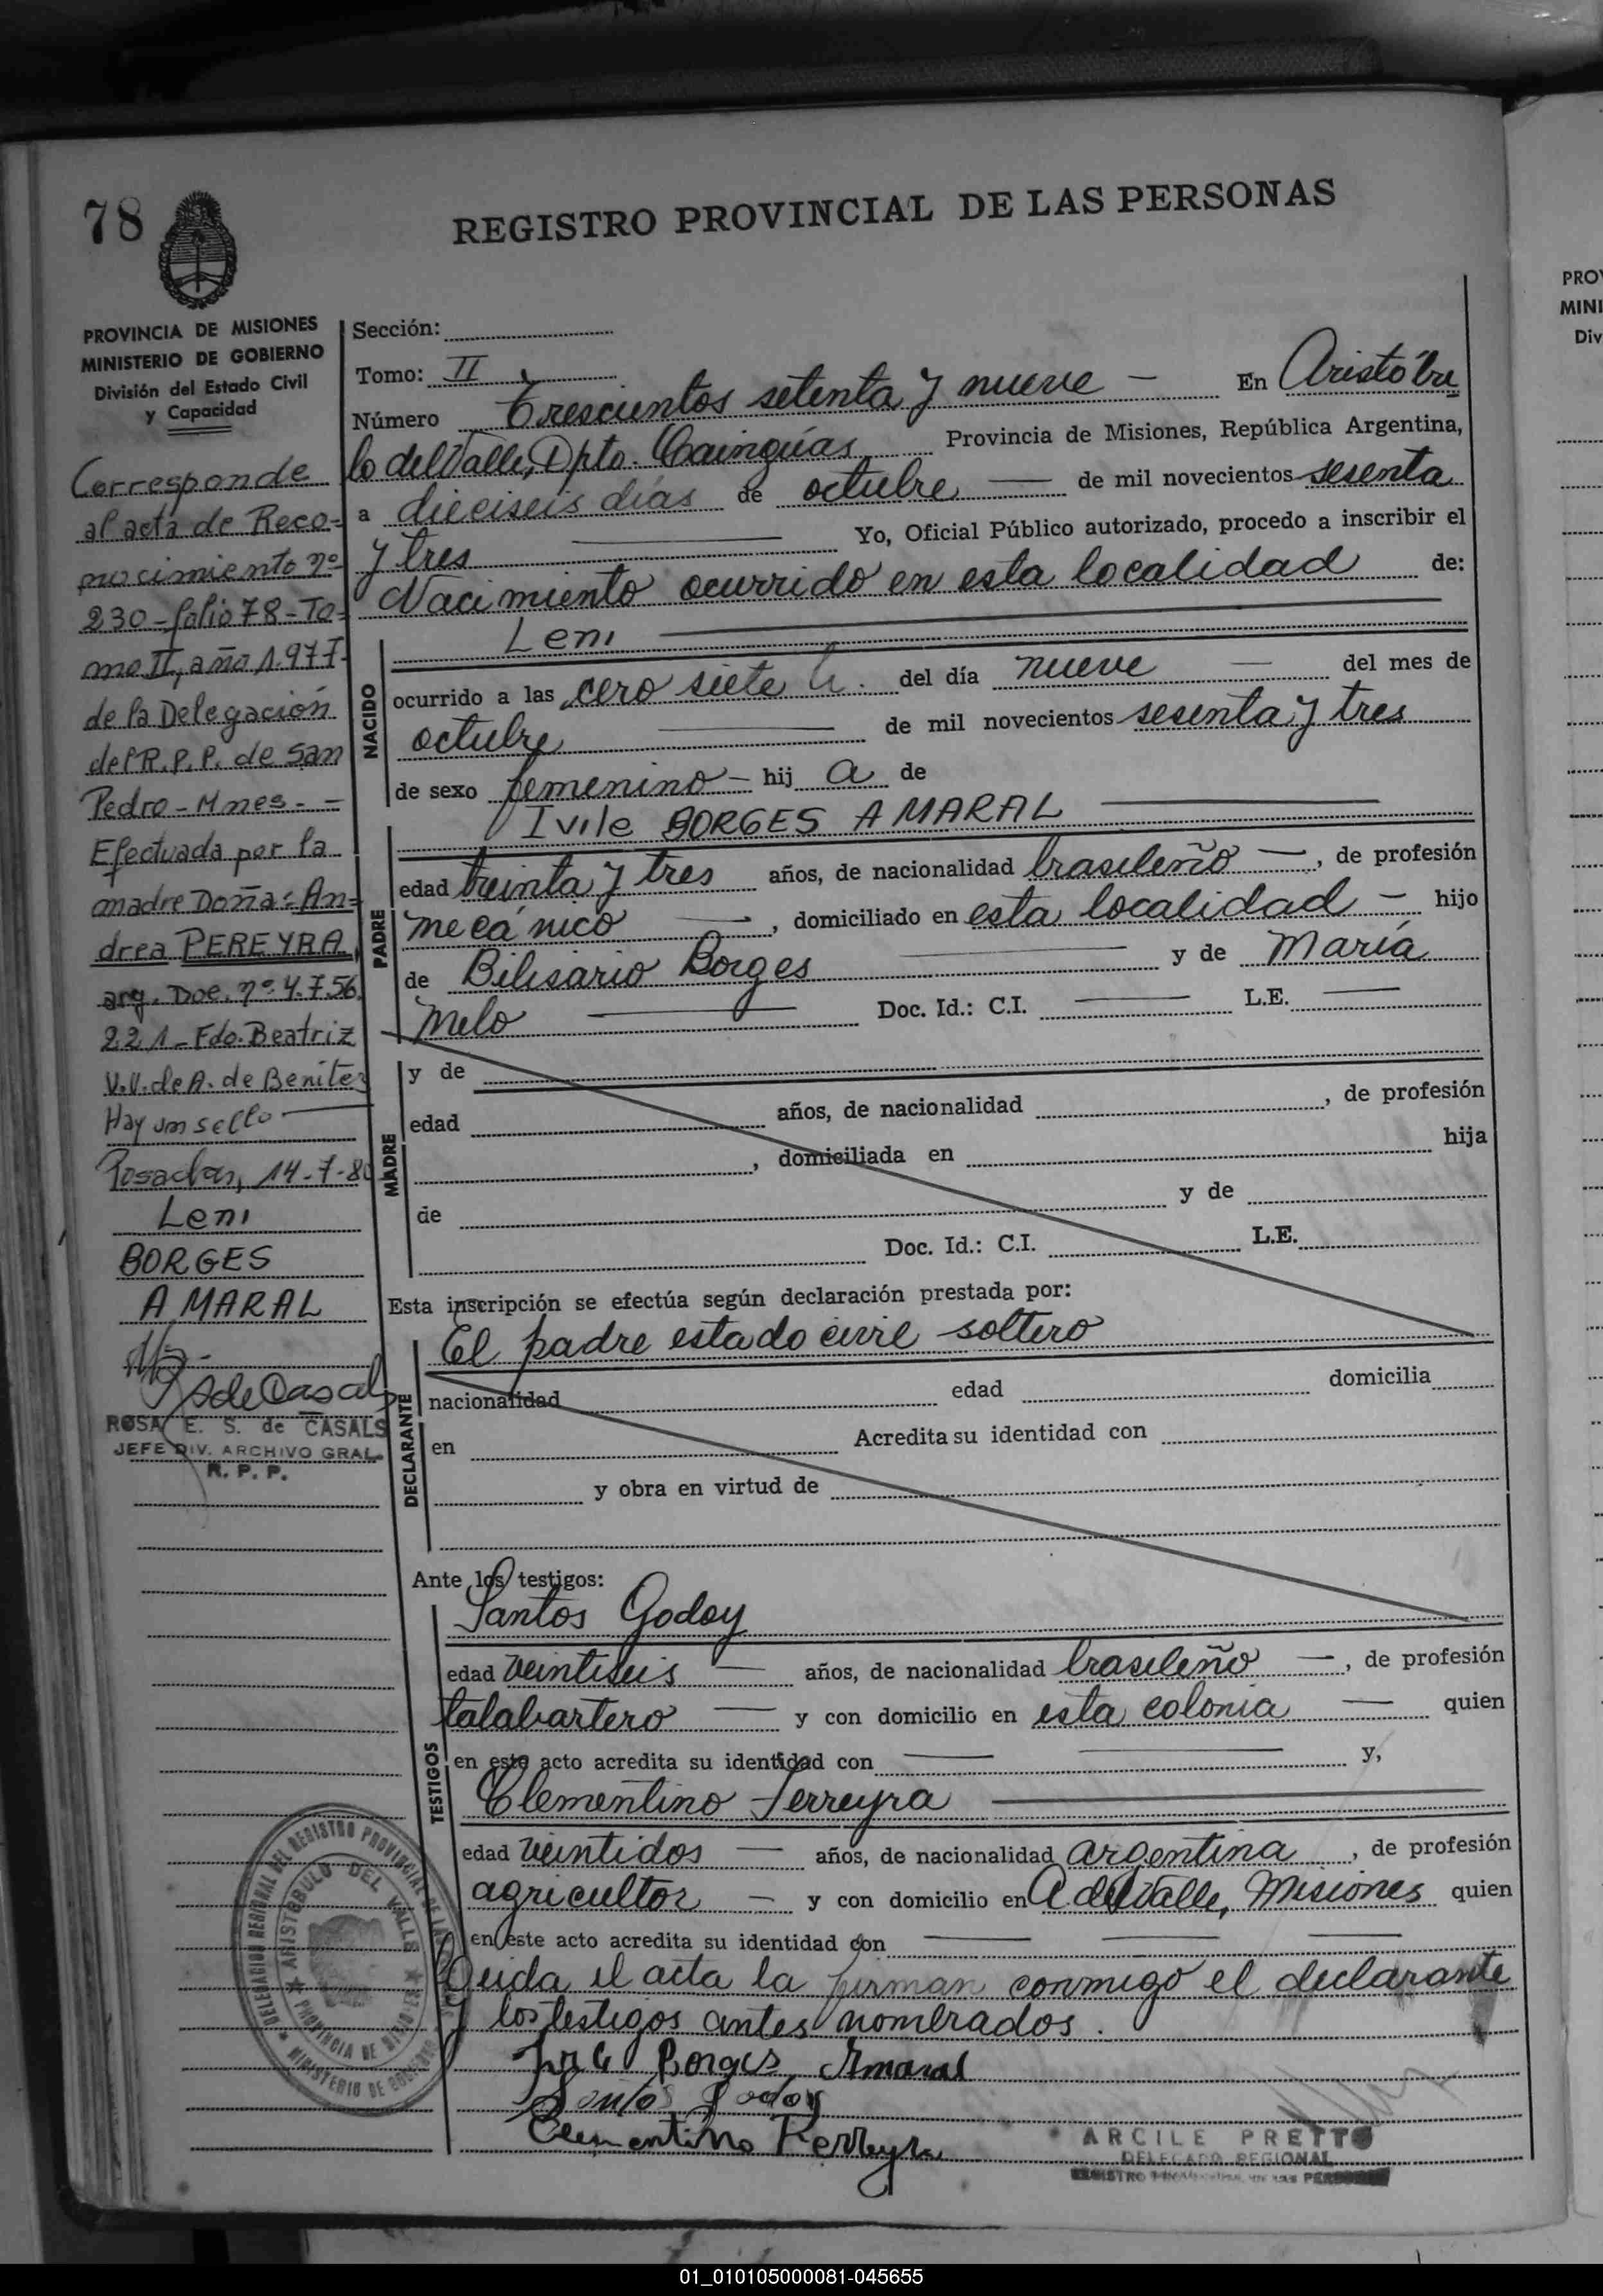 78
REGISTRO PROVINCIAL DE LAS PERSONAS
PROVINCIA DE MISIONES
MINISTERIO DE GOBIERNO
División del Estado Civil
y Capacidad
Corresponde
al acta de Reco-
nocimiento nº
230 - folio 78 - To-
mo II, año 1.977-
de la Delegación
del R.P.P. de San
Pedro - Mnes. -
Efectuada por la
madre Doña: An-
drea PEREYRA,
arg. Doc. nº 4.756.
221 - Fdo. Beatriz
V.V. de A. de Benitez
Hay un sello
Posadas, 14-7-80
Leni
BORGES
AMARAL
SdeCasals
ROSA E. S. de CASALS
JEFE DIV. ARCHIVO GRAL.
R. P. P.
Sección:
Tomo: II
Número Trescientos setenta y nueve — En Aristóbu
lo del Valle, Dpto. Cainguás Provincia de Misiones, República Argentina,
a dieciseis días de octubre — de mil novecientos sesenta
y tres — Yo, Oficial Público autorizado, procedo a inscribir el
Nacimiento ocurrido en esta localidad de:
Leni
NACIDO
ocurrido a las cero siete h. del día nueve — del mes de
octubre — de mil novecientos sesenta y tres
de sexo femenino — hij a de
Ivile BORGES AMARAL
PADRE
edad treinta y tres años, de nacionalidad brasileño —, de profesión
mecánico —, domiciliado en esta localidad — hijo
de Bilisario Borges — y de María
Melo — Doc. Id.: C.I. — L.E. —
MADRE
y de
edad años, de nacionalidad , de profesión
, domiciliada en hija
de y de
Doc. Id.: C.I. L.E.
Esta inscripción se efectúa según declaración prestada por:
El padre estado civil soltero
DECLARANTE
nacionalidad edad domicilia
en Acredita su identidad con
y obra en virtud de
Ante los testigos:
Santos Godoy
TESTIGOS
edad veintiseis — años, de nacionalidad brasileño —, de profesión
talabartero — y con domicilio en esta colonia — quien
en este acto acredita su identidad con — y,
Clementino Ferreyra
edad veintidos — años, de nacionalidad argentina, de profesión
agricultor — y con domicilio en A. del Valle, Misiones quien
en este acto acredita su identidad con —
Leida el acta la firman conmigo el declarante
y los testigos antes nombrados.
Borges Amaral
Santos Godoy
Clementino Ferreyra
ARCILE PRETTO
DELEGADO REGIONAL
REGISTRO PROVINCIAL DE LAS PERSONAS
DELEGACION REGIONAL DEL REGISTRO PROVINCIAL DE LAS
ARISTOBULO DEL VALLE
PROVINCIA DE MISIONES
MINISTERIO DE GOBIERNO
PROV
MINI
Div
01_010105000081-045655